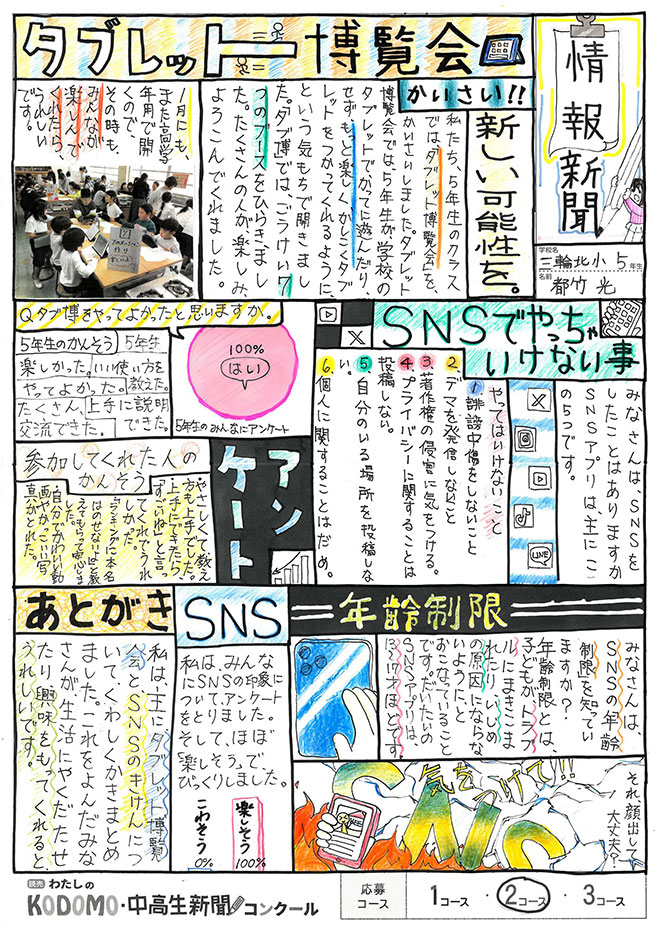 情報新聞
学校名
三輪北小 5年生
名前
都竹 光
タブレット博覧会
かいさい!!
新しい可能性を。
私たち、5年生のクラス
では、「タブレット博覧会」を、
かいさいしました。タブレット
博覧会では5年生が学校の
タブレットでかってに遊んだり、
せず、もっと楽しくかしこくタブ
レットをつかってくれるように、
という気もちで開きまし
た。「タブ博」では、ごうけい7
つのブースをひらきまし
た。たくさんの人が楽しみ、
よろこんでくれました。
1月にも、
また高学
年用で開
くので、
その時も、
みんなが
楽しんで
くれたら、
うれしい
です。
SNSでやっちゃ
いけない事
みなさんは、SNSを
したことはありますか
SNSアプリは、主にこ
の5つです。
LINE
やってはいけないこと
1誹謗中傷をしないこと
2、デマを発信しないこと
3、著作権の侵害に気をつける。
4、プライバシーに関することは
投稿しない。
5、自分のいる場所を投稿しな
い。
6、個人に関することはだめ。
Qタブ博をやってよかったと思いますか。
5年生のかんそう
楽しかった。いい使い方を
5年生
教えた。
やってよかった。
たくさん
交流できた。
上手に説明
できた。
100%
はい
5年生のみんなにアンケート
アンケート
参加してくれた人の
かんそう
やさしくて教え
方も上手でした。
上手にできたら、
「すごいね」と言っ
てくれてうれ
しかった。
ランキングに本名
はのせないよと教
えてもらって安心しま
した。
自分でかわいい動
画や、かっこいい写
真がとれた。
SNS
年齢制限
みなさんは、
SNSの年齢
制限を知てい
ますか?
年齢制限とは、
子どもがトラブ
ルにまきこま
れたり、いじめ
の原因にならな
いように、と
おこなっていること
です。だいたいの
SNSアプリは、
13才ほどです。
私は、みんな
にSNSの印象に
ついて、アンケート
をとりました。
そして、ほぼ
「楽しそう」で、
びっくりしました。
楽しそう
100%
こわそう
0%
それ、顔出して
大丈夫?
気をつけて!!
SNS
あとがき
私は、主にタブレット博覧
会と、SNSのきけんにつ
いてくわしくかきまとめ
ました。これをよんだみな
さんが生活にやくだたせ
たり興味をもってくれると、
うれしいです。
読売 わたしの
KODOMO・中高生新聞コンクール
応募
コース
1コース ・ 2コース ・ 3コース